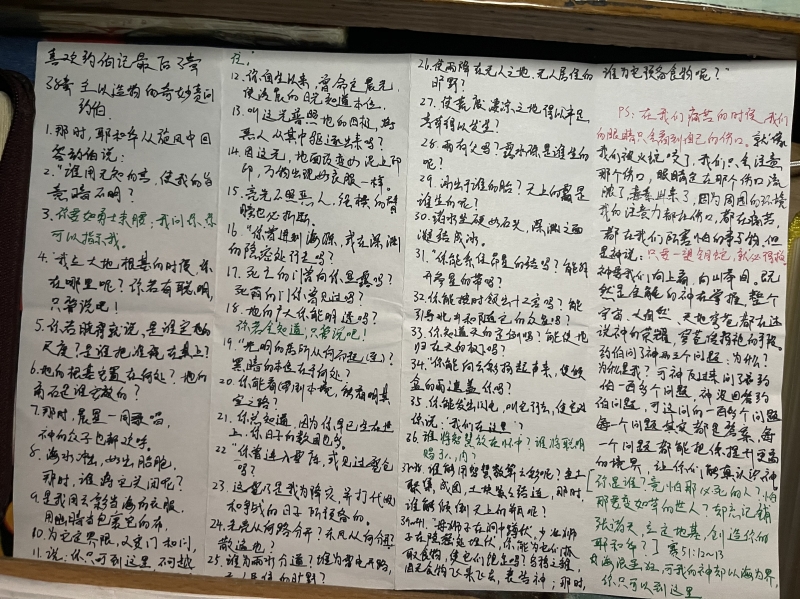 喜欢约伯记最后3章
38章 主以造物的奇妙责问
约伯
1.那时,耶和华从旋风中回
答约伯说:
2."谁用无知的言语,使我的旨
意暗昧不明?
3.你要如勇士束腰;我问你,你
可以指示我。
4.我立大地根基的时候,你
在哪里呢?你若有聪明,
只管说吧!
5.你若晓得就说,是谁定地的
尺度?是谁把准绳拉在其上?
6.地的根基安置在何处?地的
角石是谁安放的?
7.那时,晨星一同歌唱,
神的众子也都欢呼。
8.海水冲出,如出胎胞,
那时,谁将它关闭呢?
9.是我用云彩当海的衣服,
用幽暗当包裹它的布,
10.为它定界限,又安门和闩,
11.说:你只可到这里,不可越
过;
12.你自生以来,曾命定晨光,
使清晨的日光知道本位,
13.叫这光普照地的四极,将
恶人从其中驱逐出来吗?
14.因这光,地面改变如泥上印
印,万物出现如衣服一样。
15.亮光不照恶人,强横的臂
膀也必折断。
16."你曾进到海源,或在深渊
的隐密处行走吗?
17.死亡的门曾向你显露吗?
死荫的门你曾见过吗?
18.地的广大你能明透吗?
你若全知道,只管说吧!
19."光明的居所从何而至(道)?
黑暗的本位在于何处?
20.你能带到本境,能看明其
室之路?
21.你总知道,因为你早已生在世
上,你日子的数目也多。
22."你曾进入雪库,或见过雹仓
吗?
23.这雪雹乃是我为降灾,并打仗
和争战的日子所预备的。
24.光亮从何路分开?东风从何路分
散遍地?
25.谁为雨水分道?谁为雷电开路,
26.使雨降在无人之地,无人居住的
旷野?
27.使荒废凄凉之地得以丰足,
青草得以发生?
28.雨有父吗?露水珠是谁生的
呢?
29.冰出于谁的胎?天上的霜是
谁生的呢?
30.诸水坚硬如石头,深渊之面
凝结成冰。
31."你能系住昴星的结吗?能解
开参星的带吗?
32.你能按时领出十二宫吗?能
引导北斗和随它的众星吗?
33.你知道天的定例吗?能使地
归在天的权下吗?
34."你能向云彩扬起声来,使倾
盆的雨遮盖你吗?
35.你能发出闪电,叫它行去,使它对
你说:"我们在这里"?
36.谁将智慧放在怀中?谁将聪明
赐于心内?
37-38.谁能用智慧数算云彩呢?尘土
聚集成团,土块紧紧结连,那时,
谁能倾倒天上的瓶呢?
39-41."母狮子在洞中蹲伏,少壮狮
子在隐密处埋伏,你能为它们抓
取食物,使它们饱足吗?乌鸦之雏,
因无食物飞来飞去,哀告神;那时,
谁为它预备食物呢?"
PS:在我们痛苦的时候,我们
的眼睛只会看到自己的伤口。就像
我们被火蛇咬了,我们只会注意
那个伤口,眼睛定在那个伤口流
脓了,毒素出来了,因为周围的环境
我的注意力都在伤口,都在痛苦,
都在我们所害怕的事情,但
是神说:只要一望铜蛇,就必得救。
神要我们向上看,向山举目。既
然是全能的神在掌握整个
宇宙,大自然,天地穹苍都在述
说神的荣耀,穹苍传扬祂的手段。
约伯问了神两三个问题,为什么?
为什么是我?可神反过来问了将约
伯一百多个问题,神没回答约
伯问题,可这问的一百多个问题
每一个问题其实都是答案,每
一个问题都能把你提升更高
的境界,让你们能真认识神。
[你是谁?竟怕那必死的人?怕
那要变如草的世人?却忘记铺
张诸天,立定地基,创造你的
耶和华?]赛51:12~13
海浪虽狂,可我的神却以海为界,
你只可以到这里